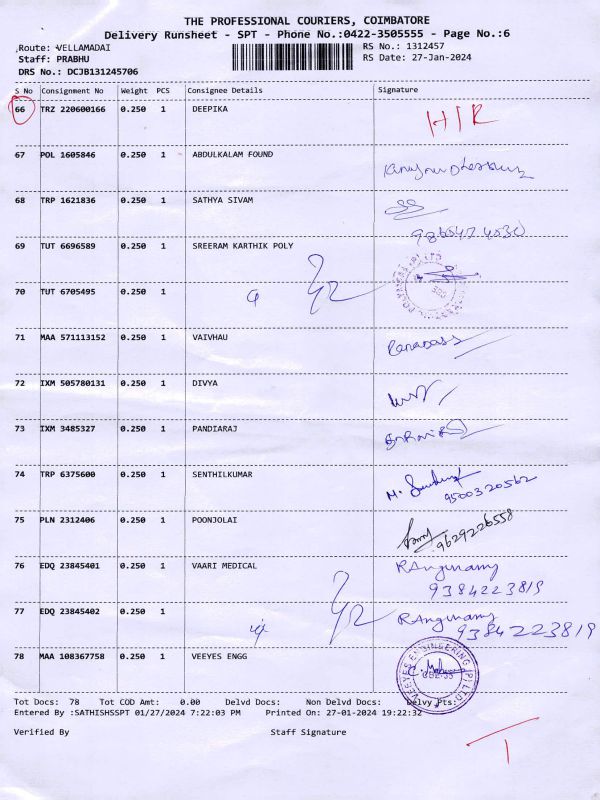 THE PROFESSIONAL COURIERS, COIMBATORE
Delivery Runsheet - SPT - Phone No.:0422-3505555 - Page No.:6
Route: VELLAMADAI RS No.: 1312457
Staff: PRABHU RS Date: 27-Jan-2024
DRS No.: DCJB131245706
S No Consignment No Weight PCS Consignee Details Signature
66 TRZ 220600166 0.250 1 DEEPIKA
67 POL 1605846 0.250 1 ABDULKALAM FOUND
68 TRP 1621836 0.250 1 SATHYA SIVAM
69 TUT 6696589 0.250 1 SREERAM KARTHIK POLY
70 TUT 6705495 0.250 1
71 MAA 571113152 0.250 1 VAIVHAU
72 IXM 505780131 0.250 1 DIVYA
73 IXM 3485327 0.250 1 PANDIARAJ
74 TRP 6375600 0.250 1 SENTHILKUMAR
9500320562
75 PLN 2312406 0.250 1 POONJOLAI
9629226558
76 EDQ 23845401 0.250 1 VAARI MEDICAL
9384223819
77 EDQ 23845402 0.250 1
9384223819
78 MAA 108367758 0.250 1 VEEYES ENGG
VEEYES ENGINEERING (P) LTD
Tot Docs: 78 Tot COD Amt: 0.00 Delvd Docs: Non Delvd Docs: Delvy Pts:
Entered By :SATHISHSSPT 01/27/2024 7:22:03 PM Printed On: 27-01-2024 19:22:32
Verified By Staff Signature